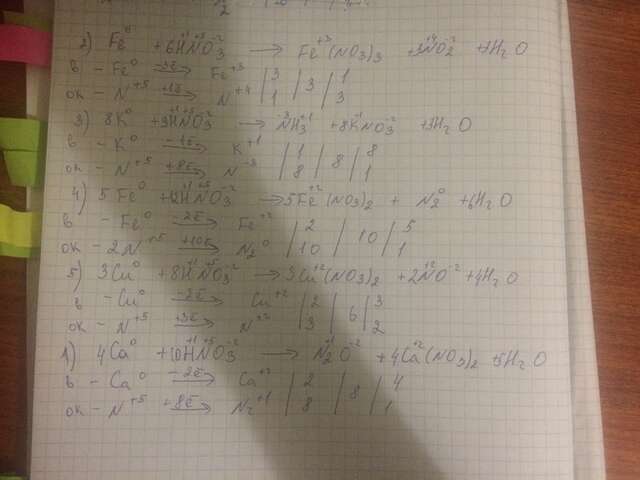 2) Fe⁰ + 6H⁺¹N⁺⁵O₃⁻² → Fe⁺³(NO₃)₃ + 3N⁺⁴O₂⁻² + 3H₂O
в – Fe⁰ –3e̅→ Fe⁺³ | 3 | 3 | 1
ок – N⁺⁵ +1e̅→ N⁺⁴ | 1 | | 3
3) 8K⁰ + 9H⁺¹N⁺⁵O₃⁻² → N⁻³H₃⁺¹ + 8K⁺¹NO₃⁻² + 3H₂O
в – K⁰ –1e̅→ K⁺¹ | 1 | | 8
ок – N⁺⁵ +8e̅→ N⁻³ | 8 | 8 | 1
4) 5Fe⁰ + 12H⁺¹N⁺⁵O₃⁻² → 5Fe⁺²(NO₃)₂ + N₂⁰ + 6H₂O
в – Fe⁰ –2e̅→ Fe⁺² | 2 | | 5
ок – 2N⁺⁵ +10e̅→ N₂⁰ | 10 | 10 | 1
5) 3Cu⁰ + 8H⁺¹N⁺⁵O₃⁻² → 3Cu⁺²(NO₃)₂ + 2N⁺²O⁻² + 4H₂O
в – Cu⁰ –2e̅→ Cu⁺² | 2 | | 3
ок – N⁺⁵ +3e̅→ N⁺² | 3 | 6 | 2
1) 4Ca⁰ + 10H⁺¹N⁺⁵O₃⁻² → N₂⁺¹O⁻² + 4Ca⁺²(NO₃)₂ + 5H₂O
в – Ca⁰ –2e̅→ Ca⁺² | 2 | | 4
ок – N⁺⁵ +8e̅→ N₂⁺¹ | 8 | 8 | 1